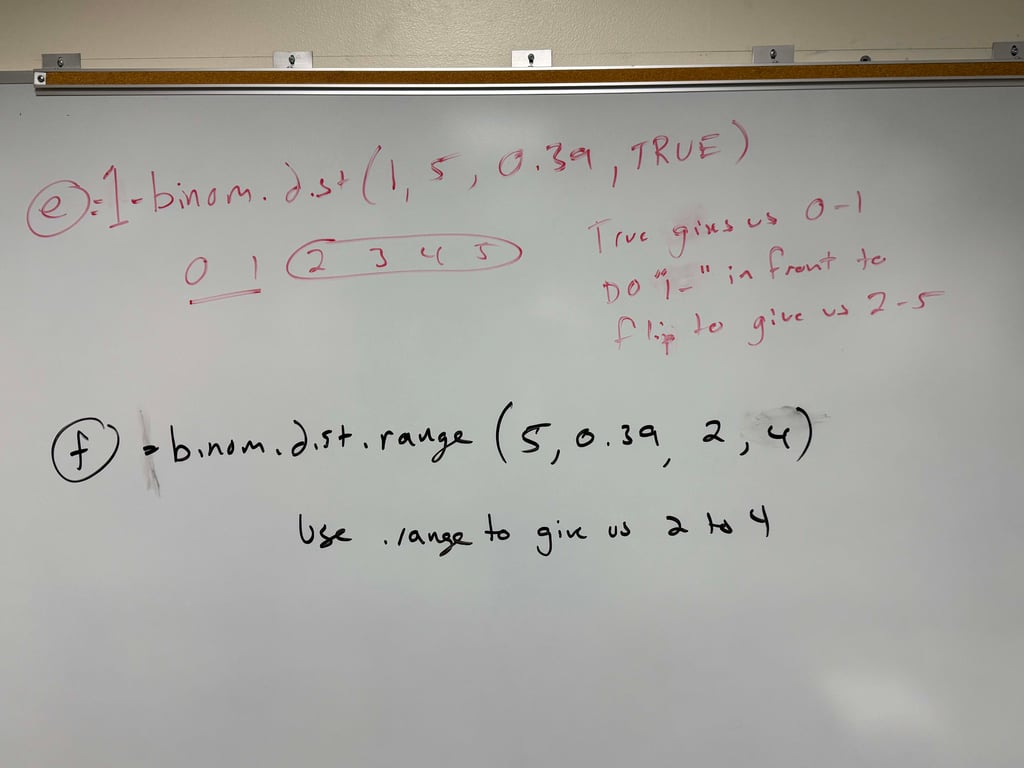 e =1-binom.dist(1, 5, 0.39, TRUE)
0 1 2 3 4 5
True gives us 0-1
DO "1-" in front to
flip to give us 2-5
f =binom.dist.range (5, 0.39, 2, 4)
Use .range to give us 2 to 4